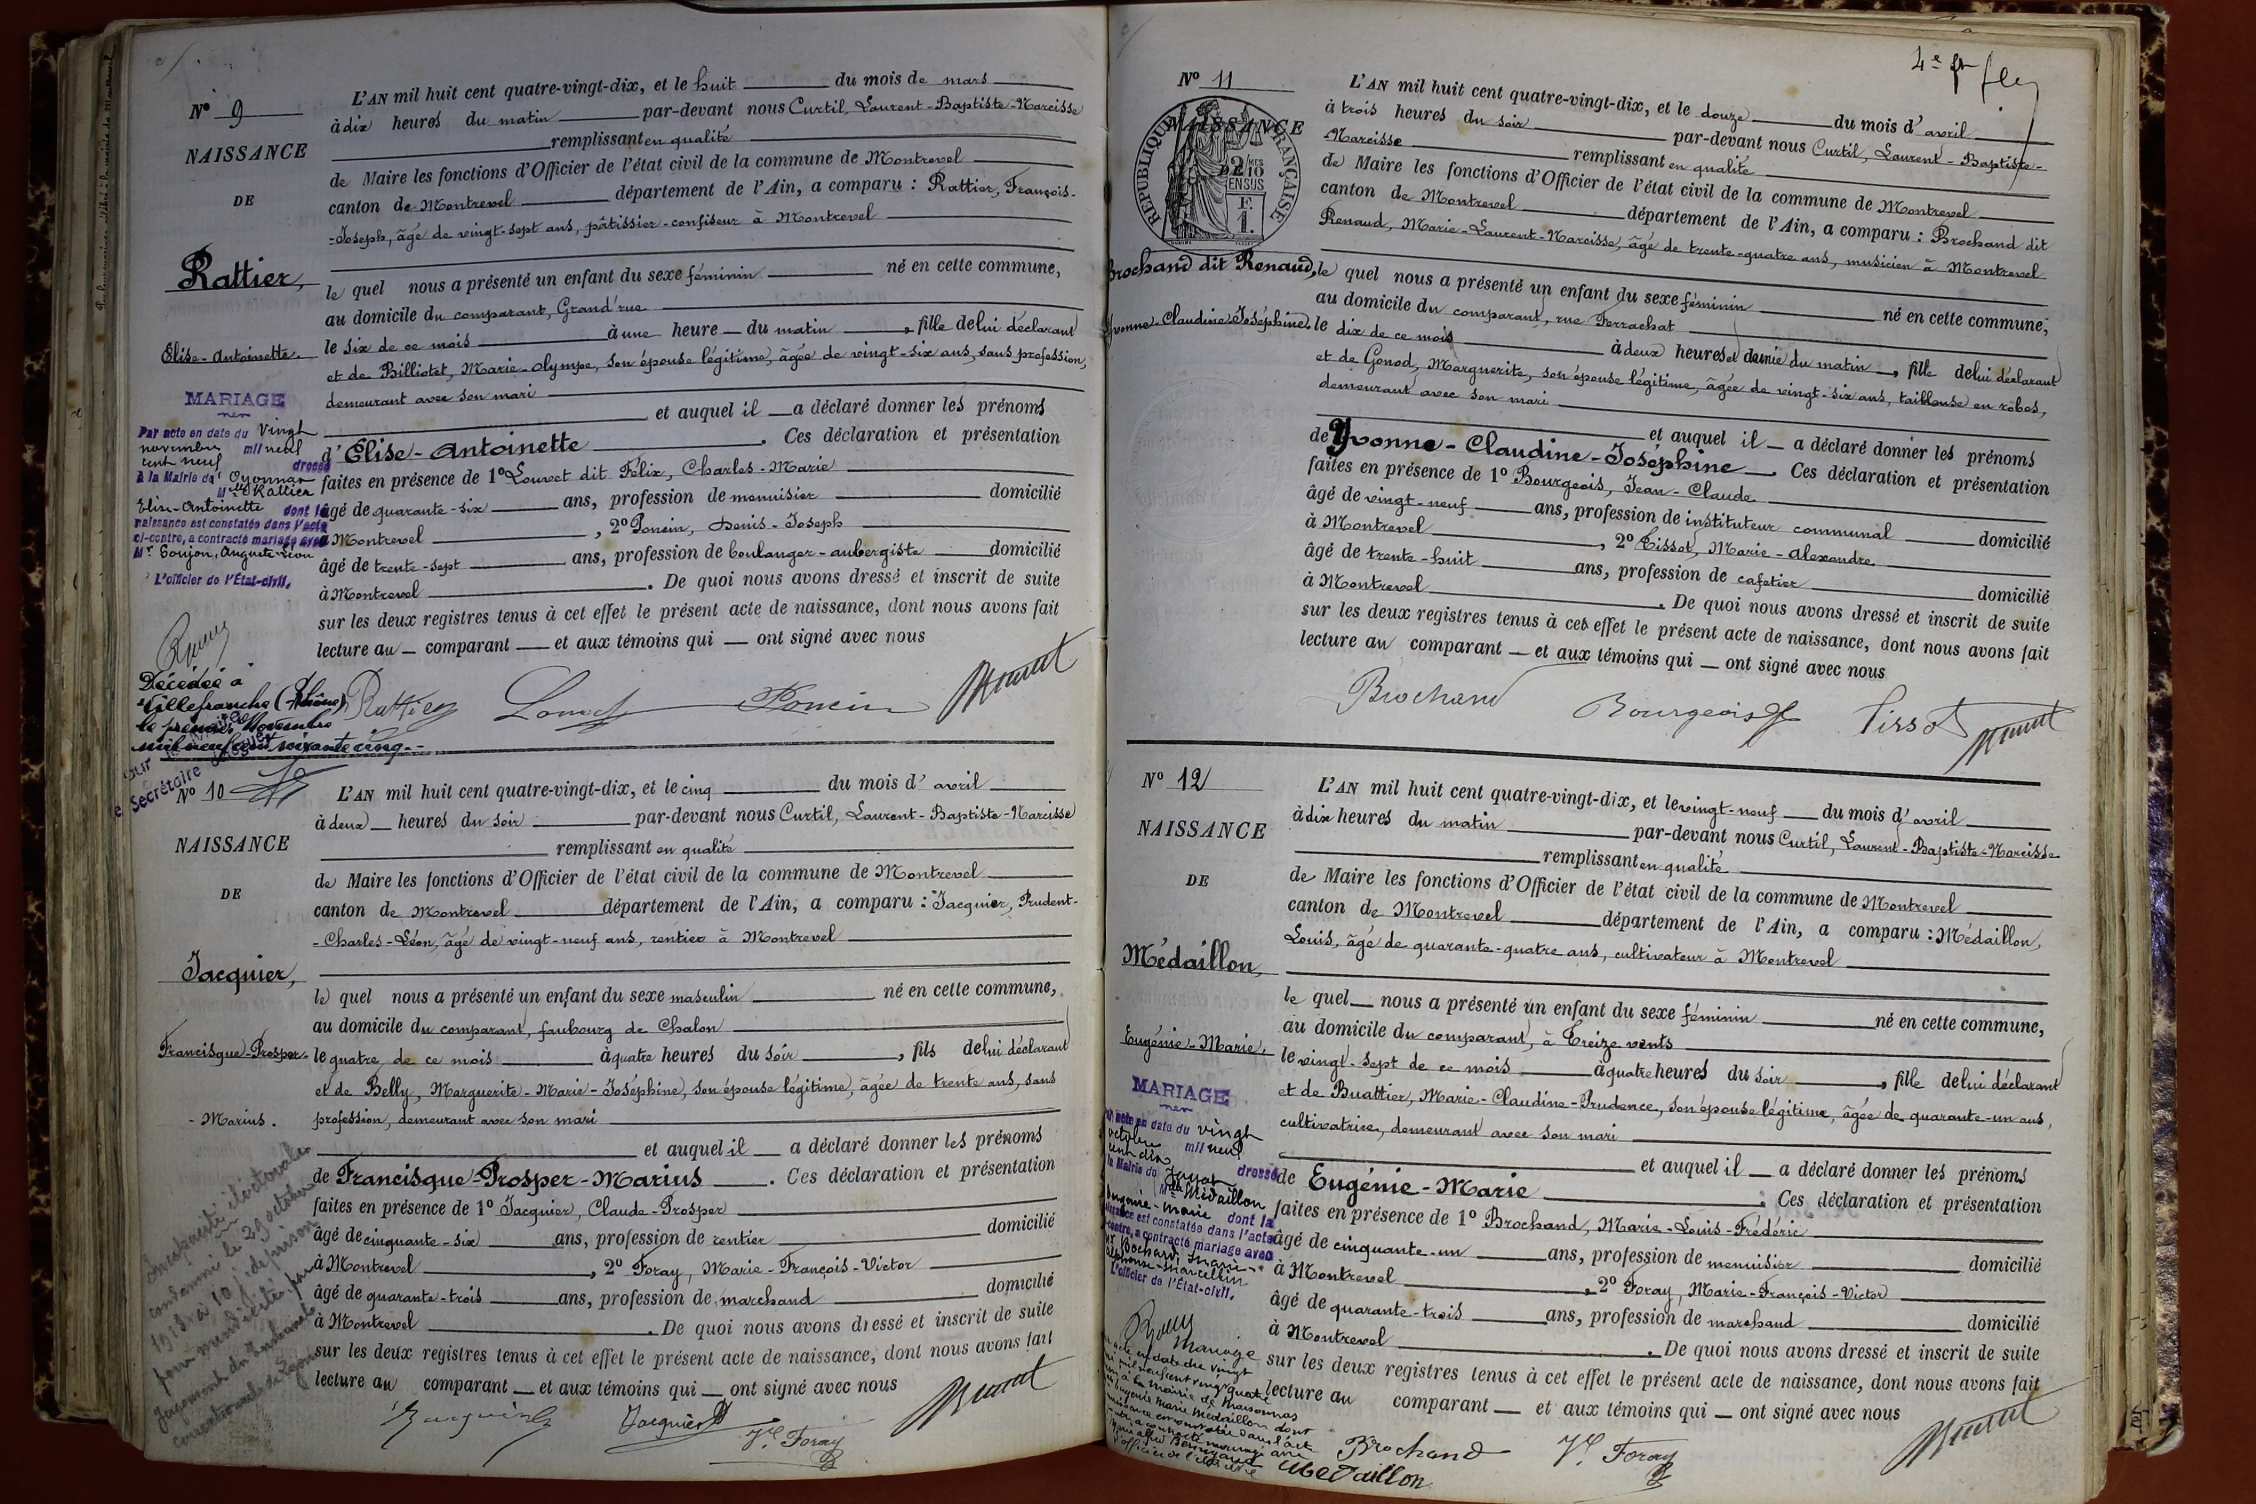 N° 9
NAISSANCE
DE
Rattier,
Elise-Antoinette.
L'AN mil huit cent quatre-vingt-dix, et le huit du mois de mars
à dix heures du matin par-devant nous Curtil, Laurent-Baptiste-Narcisse
remplissant en qualité
de Maire les fonctions d'Officier de l'état civil de la commune de Montrevel
canton de Montrevel département de l'Ain, a comparu : Rattier, François-
-Joseph, âgé de vingt-sept ans, pâtissier-confiseur à Montrevel
le quel nous a présenté un enfant du sexe féminin né en cette commune,
au domicile du comparant, Grand'rue
le six de ce mois à une heure du matin, fille de lui déclarant
et de Billiotet, Marie-Olympe, son épouse légitime, âgée de vingt-six ans, sans profession,
demeurant avec son mari
et auquel il a déclaré donner les prénoms
d'Elise-Antoinette. Ces déclaration et présentation
faites en présence de 1° Louvet dit Félix, Charles-Marie
âgé de quarante-six ans, profession de menuisier domicilié
à Montrevel, 2° Poncin, Denis-Joseph
âgé de trente-sept ans, profession de boulanger-aubergiste domicilié
à Montrevel. De quoi nous avons dressé et inscrit de suite
sur les deux registres tenus à cet effet le présent acte de naissance, dont nous avons fait
lecture au comparant et aux témoins qui ont signé avec nous
Rattier Louvet Poncin
MARIAGE
Par acte en date du vingt
novembre mil neuf
cent neuf dressé
à la Mairie d'Oyonnax
Mlle Rattier
Elise-Antoinette dont la
naissance est constatée dans l'acte
ci-contre, a contracté mariage avec
Mr Goujon, Auguste-Léon
L'officier de l'État-civil.
Décédée à
Villefranche (Rhône)
le premier Novembre
mil neuf cent soixante cinq.
Secrétaire
N° 10
NAISSANCE
DE
Jacquier,
Francisque-Prosper-
-Marius.
L'AN mil huit cent quatre-vingt-dix, et le cinq du mois d'avril
à deux heures du soir par-devant nous Curtil, Laurent-Baptiste-Narcisse
remplissant en qualité
de Maire les fonctions d'Officier de l'état civil de la commune de Montrevel
canton de Montrevel département de l'Ain, a comparu : Jacquier, Prudent-
-Charles-Léon, âgé de vingt-neuf ans, rentier à Montrevel
le quel nous a présenté un enfant du sexe masculin né en cette commune,
au domicile du comparant, faubourg de Chalon
le quatre de ce mois à quatre heures du soir, fils de lui déclarant
et de Belly, Marguerite-Marie-Joséphine, son épouse légitime, âgée de trente ans, sans
profession, demeurant avec son mari
et auquel il a déclaré donner les prénoms
de Francisque-Prosper-Marius. Ces déclaration et présentation
faites en présence de 1° Jacquier, Claude-Prosper
âgé de cinquante-six ans, profession de rentier domicilié
à Montrevel, 2° Foray, Marie-François-Victor
âgé de quarante-trois ans, profession de marchand domicilié
à Montrevel. De quoi nous avons dressé et inscrit de suite
sur les deux registres tenus à cet effet le présent acte de naissance, dont nous avons fait
lecture au comparant et aux témoins qui ont signé avec nous
Jacquier Vr Foray
Incapacité électorale
condamné le 29 octobre
à 10 j. de prison
pour mendicité par
Jugement du Tribunal
correctionnel de Lyon
4e
N° 11
NAISSANCE
REPUBLIQUE FRANÇAISE
Brochand dit Renaud,
Yvonne-Claudine-Joséphine.
L'AN mil huit cent quatre-vingt-dix, et le douze du mois d'avril
à trois heures du soir par-devant nous Curtil, Laurent-Baptiste-
-Narcisse remplissant en qualité
de Maire les fonctions d'Officier de l'état civil de la commune de Montrevel
canton de Montrevel département de l'Ain, a comparu : Brochand dit
Renaud, Marie-Laurent-Narcisse, âgé de trente-quatre ans, musicien à Montrevel
le quel nous a présenté un enfant du sexe féminin né en cette commune,
au domicile du comparant, rue Ferrachat
le dix de ce mois à deux heures et demie du matin, fille de lui déclarant
et de Gonod, Marguerite, son épouse légitime, âgée de vingt-six ans, tailleuse en robes,
demeurant avec son mari
et auquel il a déclaré donner les prénoms
de Yvonne-Claudine-Joséphine. Ces déclaration et présentation
faites en présence de 1° Bourgeois, Jean-Claude
âgé de vingt-neuf ans, profession de instituteur communal domicilié
à Montrevel, 2° Tissot, Marie-Alexandre
âgé de trente-huit ans, profession de cafetier domicilié
à Montrevel. De quoi nous avons dressé et inscrit de suite
sur les deux registres tenus à cet effet le présent acte de naissance, dont nous avons fait
lecture au comparant et aux témoins qui ont signé avec nous
Brochand Bourgeois Tissot
N° 12
NAISSANCE
DE
Médaillon,
Eugénie-Marie.
L'AN mil huit cent quatre-vingt-dix, et le vingt-neuf du mois d'avril
à dix heures du matin par-devant nous Curtil, Laurent-Baptiste-Narcisse
remplissant en qualité
de Maire les fonctions d'Officier de l'état civil de la commune de Montrevel
canton de Montrevel département de l'Ain, a comparu : Médaillon,
Louis, âgé de quarante-quatre ans, cultivateur à Montrevel
le quel nous a présenté un enfant du sexe féminin né en cette commune,
au domicile du comparant, à Treize vents
le vingt-sept de ce mois à quatre heures du soir, fille de lui déclarant
et de Buattier, Marie-Claudine-Prudence, son épouse légitime, âgée de quarante-un ans,
cultivatrice, demeurant avec son mari
et auquel il a déclaré donner les prénoms
de Eugénie-Marie. Ces déclaration et présentation
faites en présence de 1° Brochand, Marie-Louis-Frédéric
âgé de cinquante-un ans, profession de menuisier domicilié
à Montrevel, 2° Foray, Marie-François-Victor
âgé de quarante-trois ans, profession de marchand domicilié
à Montrevel. De quoi nous avons dressé et inscrit de suite
sur les deux registres tenus à cet effet le présent acte de naissance, dont nous avons fait
lecture au comparant et aux témoins qui ont signé avec nous
Brochand Vr Foray
Médaillon
MARIAGE
acte en date du vingt
octobre mil neuf
cent dix
la Mairie de Jayat dressé
Mlle Médaillon
Eugénie-Marie dont la
naissance est constatée dans l'acte
contre, a contracté mariage avec
Mr Bochard, Marie-
Alphonse-Marcellin
L'officier de l'État-civil.
Mariage
acte en date du vingt
mil neuf cent vingt quatre
à la mairie de Marsonnas
Eugénie Marie Médaillon dont
naissance est constatée dans l'acte
a contracté mariage avec
l'officier de l'état civil